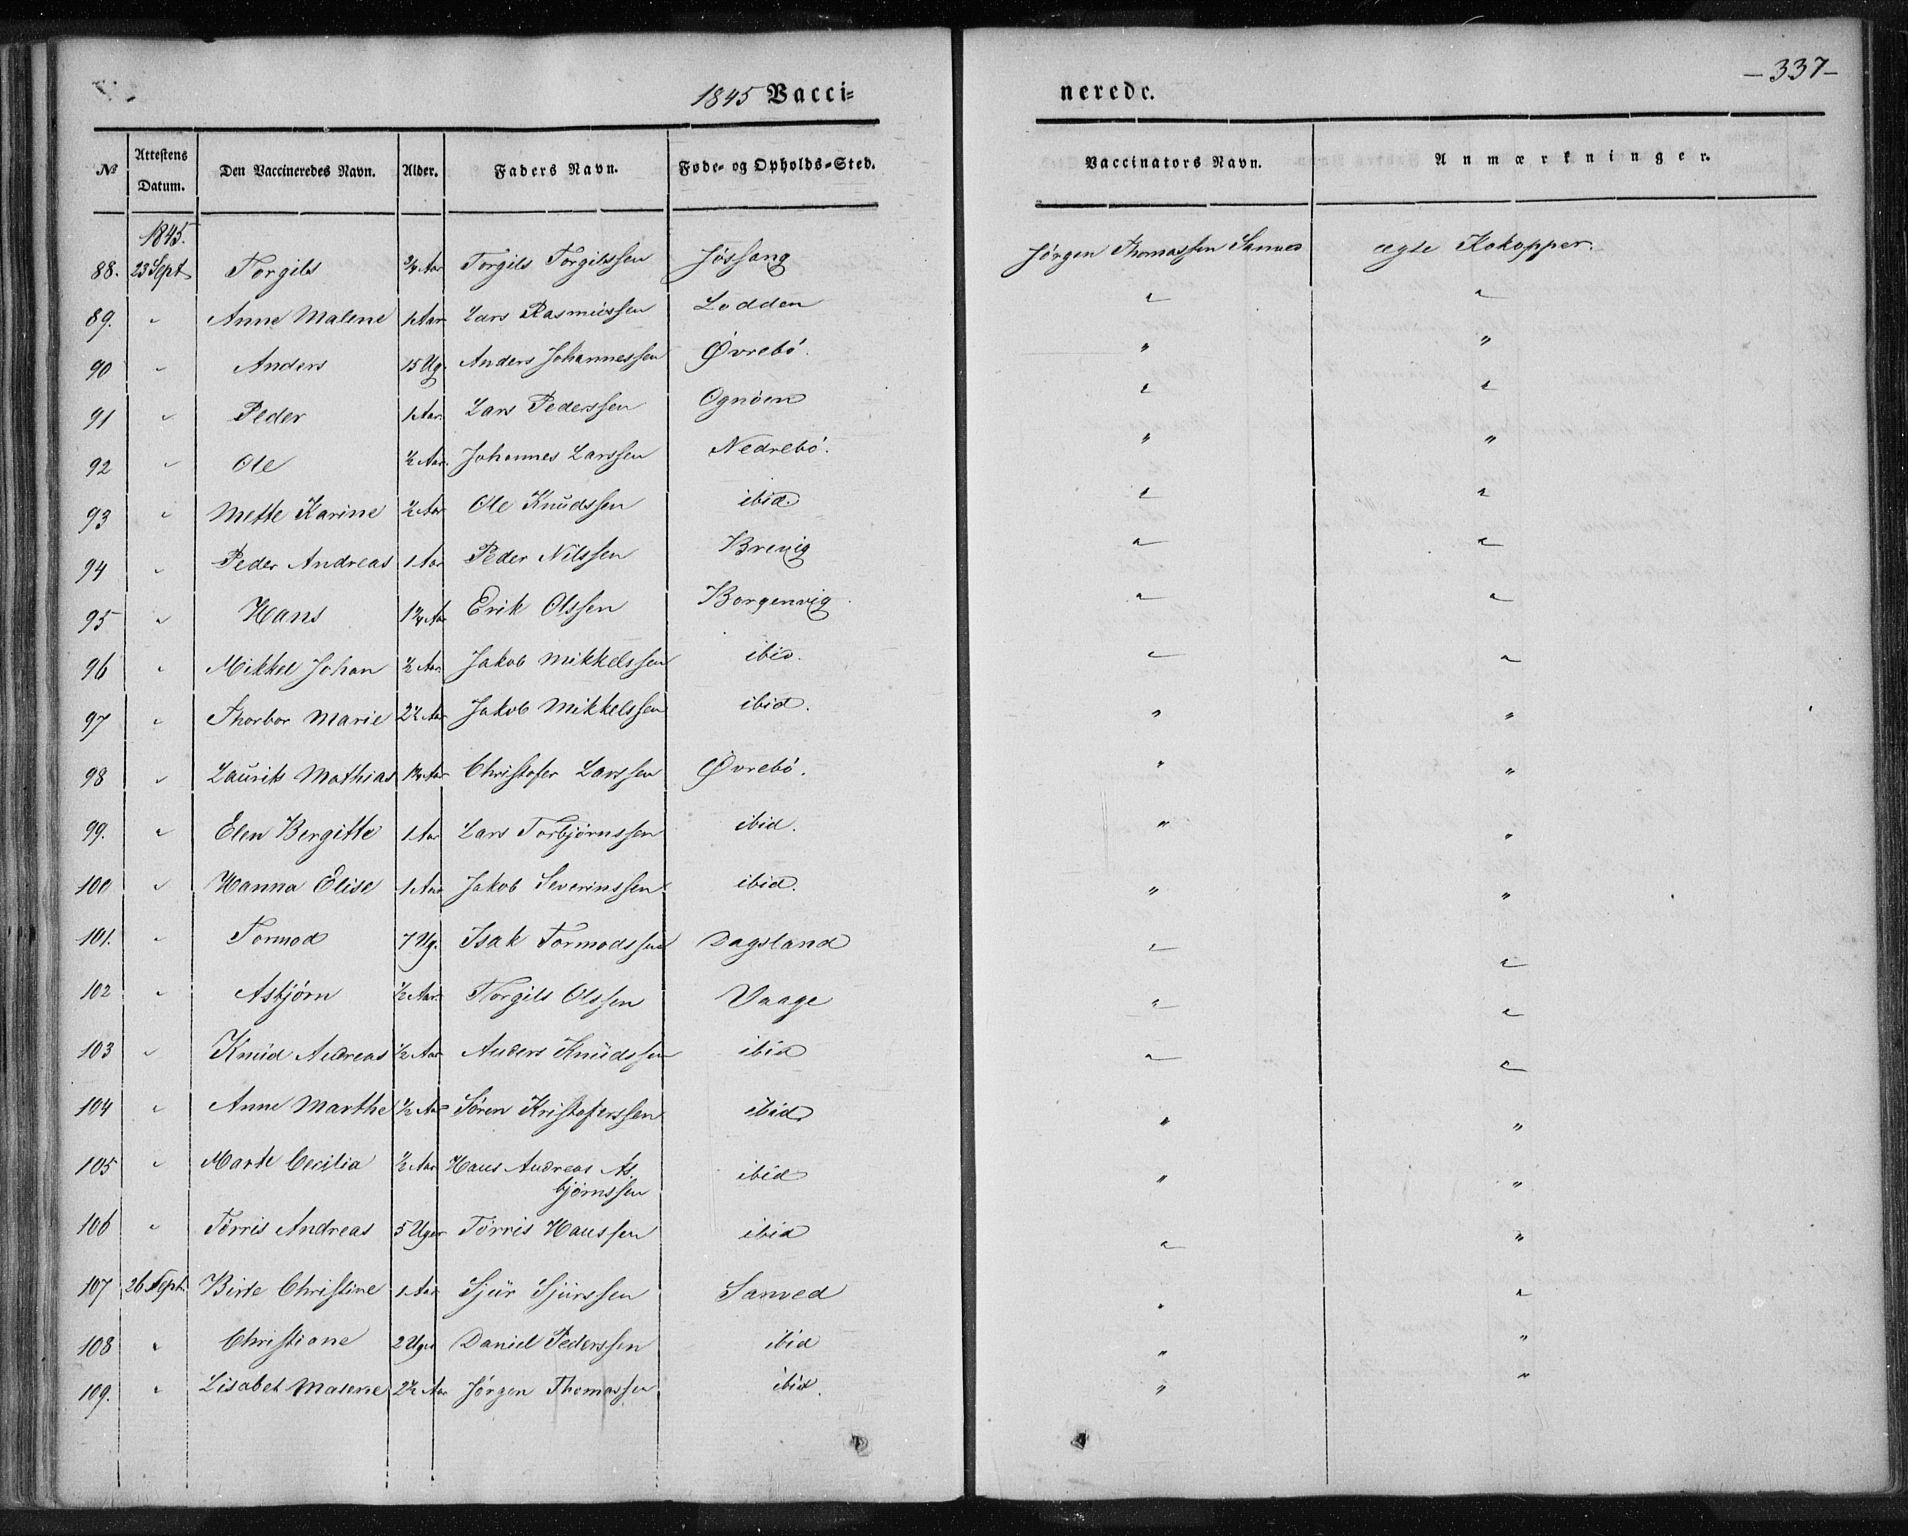 1845 Vacci=
nerede.
-337-
№ Attestens Datum. Den Vaccineredes Navn. Alder. Faders Navn. Føde- og Opholds-Sted. Vaccinators Navn. Anmærkninger.
1845.
88. 23 Sept Torgils 3/4 Aar Torgils Torgilssen Jøssang Jørgen Thomassen Sanved ægte Kokopper.
89. " Anne Malene 1 Aar Lars Rasmussen Lodden " "
90 " Anders 15 Ug. Anders Johannessen Øvrebö. " "
91 " Peder 1 Aar. Lars Pederssen Ognøen " "
92 " Ole 1/2 Aar. Johannes Larssen Nedrebö. " "
93 " Mette Karine 1/2 Aar Ole Knudssen ibid. " "
94 " Peder Andreas 1 Aar Peder Nilssen " "
95 " Hans Erik Olssen Borgenvig " "
96 " Mikkel Johan 1/2 Aar. Jakob Mikkelssen ibid. " "
97 " Thorbor Marie 2 1/2 Aar Jakob Mikkelssen ibid. " "
98 " Laurits Mathias Christofer Larssen Øvrebö. " "
99. " Elen Bergitte 1 Aar Lars Torbjørnssen ibid. " "
100 " Hanna Elise 1 Aar Jakob Severinssen ibid. " "
101. " Tormod 7 Ug. Isak Tormodssen Dagsland " "
102 " Asbjørn 1/2 Aar. Torgils Olssen Vaage " "
103 " Knud Andreas 1/2 Aar Anders Knudssen ibid " "
104 " Anne Marthe 1/2 Aar Sören Kristoferssen ibid. " "
105 " Marte Cecilia 1/2 Aar Hans Andreas As
bjørnssen ibid " "
106 " Tørris Andreas 5 Uger Tørris Hanssen ibid " "
107 26 Sept. Birte Christine 1 Aar Sjur Sjurssen Sanved " "
108 " Christiane 2 Uger Daniel Pederssen ibid " "
109. " Lisabet Malene 2 1/2 Aar Jörgen Thomassen ibid. " "